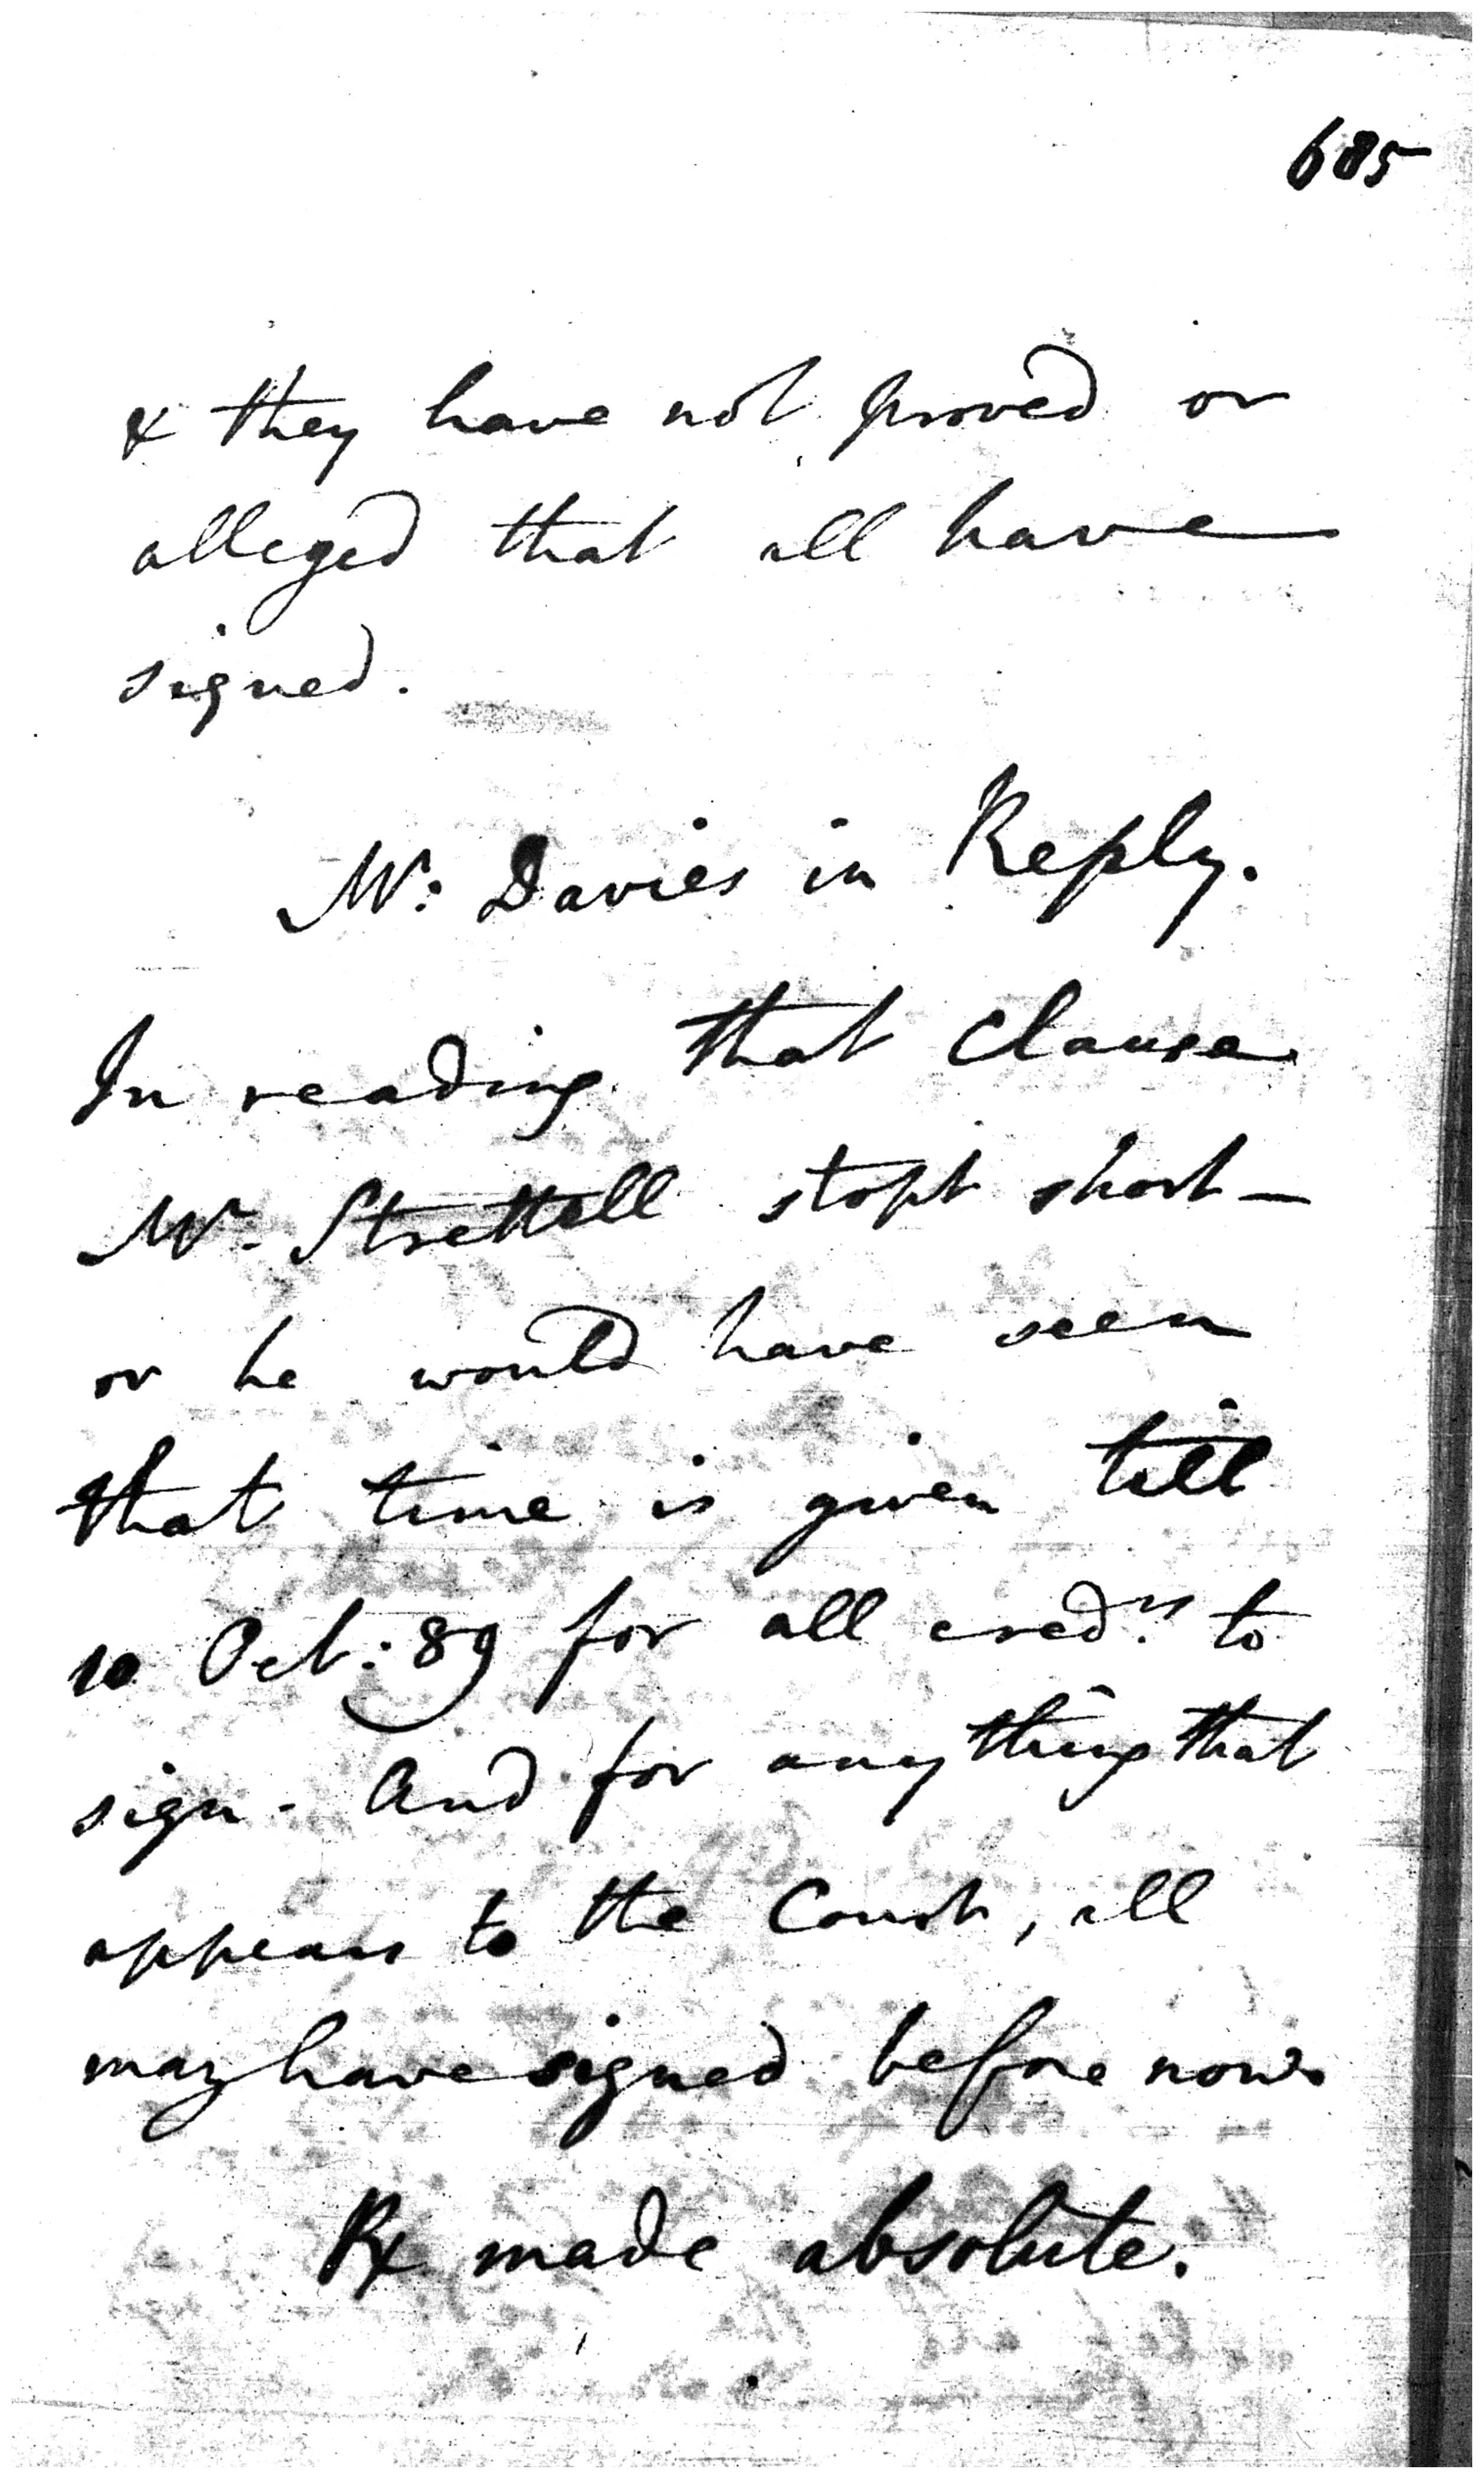 685
& they have not proved or
alleged that all have
signed.
Mr: Davies in Reply.
In reading that Clause
Mr. Strettell stopt short —
or he would have seen
that time is given till
10 Oct: 89 for all cred.rs to
sign - And for any thing that
appears to the Court, all
may have signed before now.
Rx made absolute.